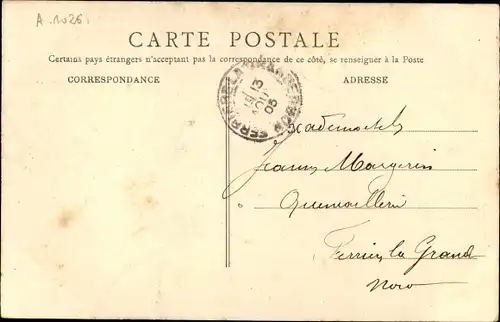 A. 1026.
CARTE POSTALE
Certains pays étrangers n'acceptant pas la correspondance de ce côté, se renseigner à la Poste
CORRESPONDANCE
ADRESSE
13
05
Jeanne Margerin
Ferrière la Grand
Nord